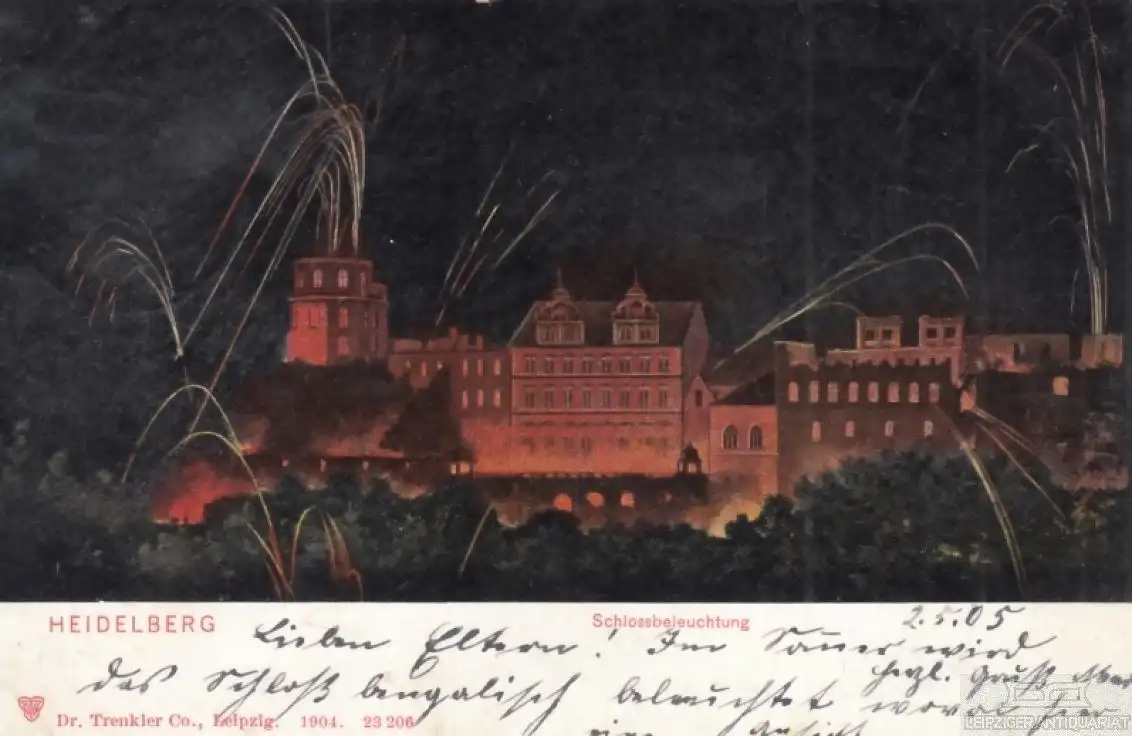 HEIDELBERG
Schlossbeleuchtung
2.5.05
Lieben Eltern! Im Sommer wird
das Schloß bengalisch beleuchtet wovon hier
herzl. Gruß
eine Ansicht
Dr. Trenkler Co., Leipzig. 1904. 23 206
LEIPZIGER ANTIQUARIAT